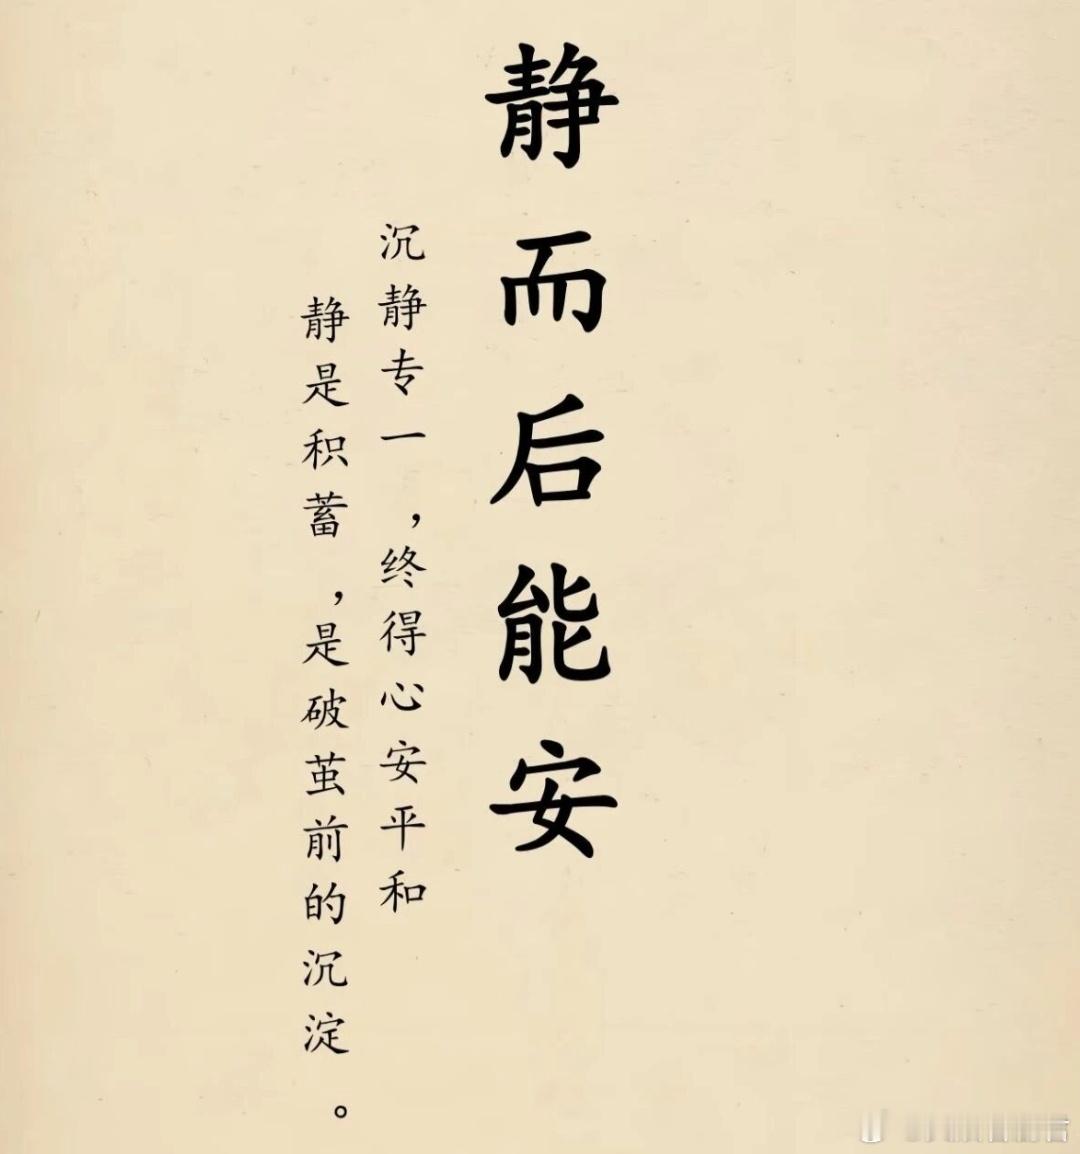 静而后能安
沉静专一，终得心安平和
静是积蓄，是破茧前的沉淀。